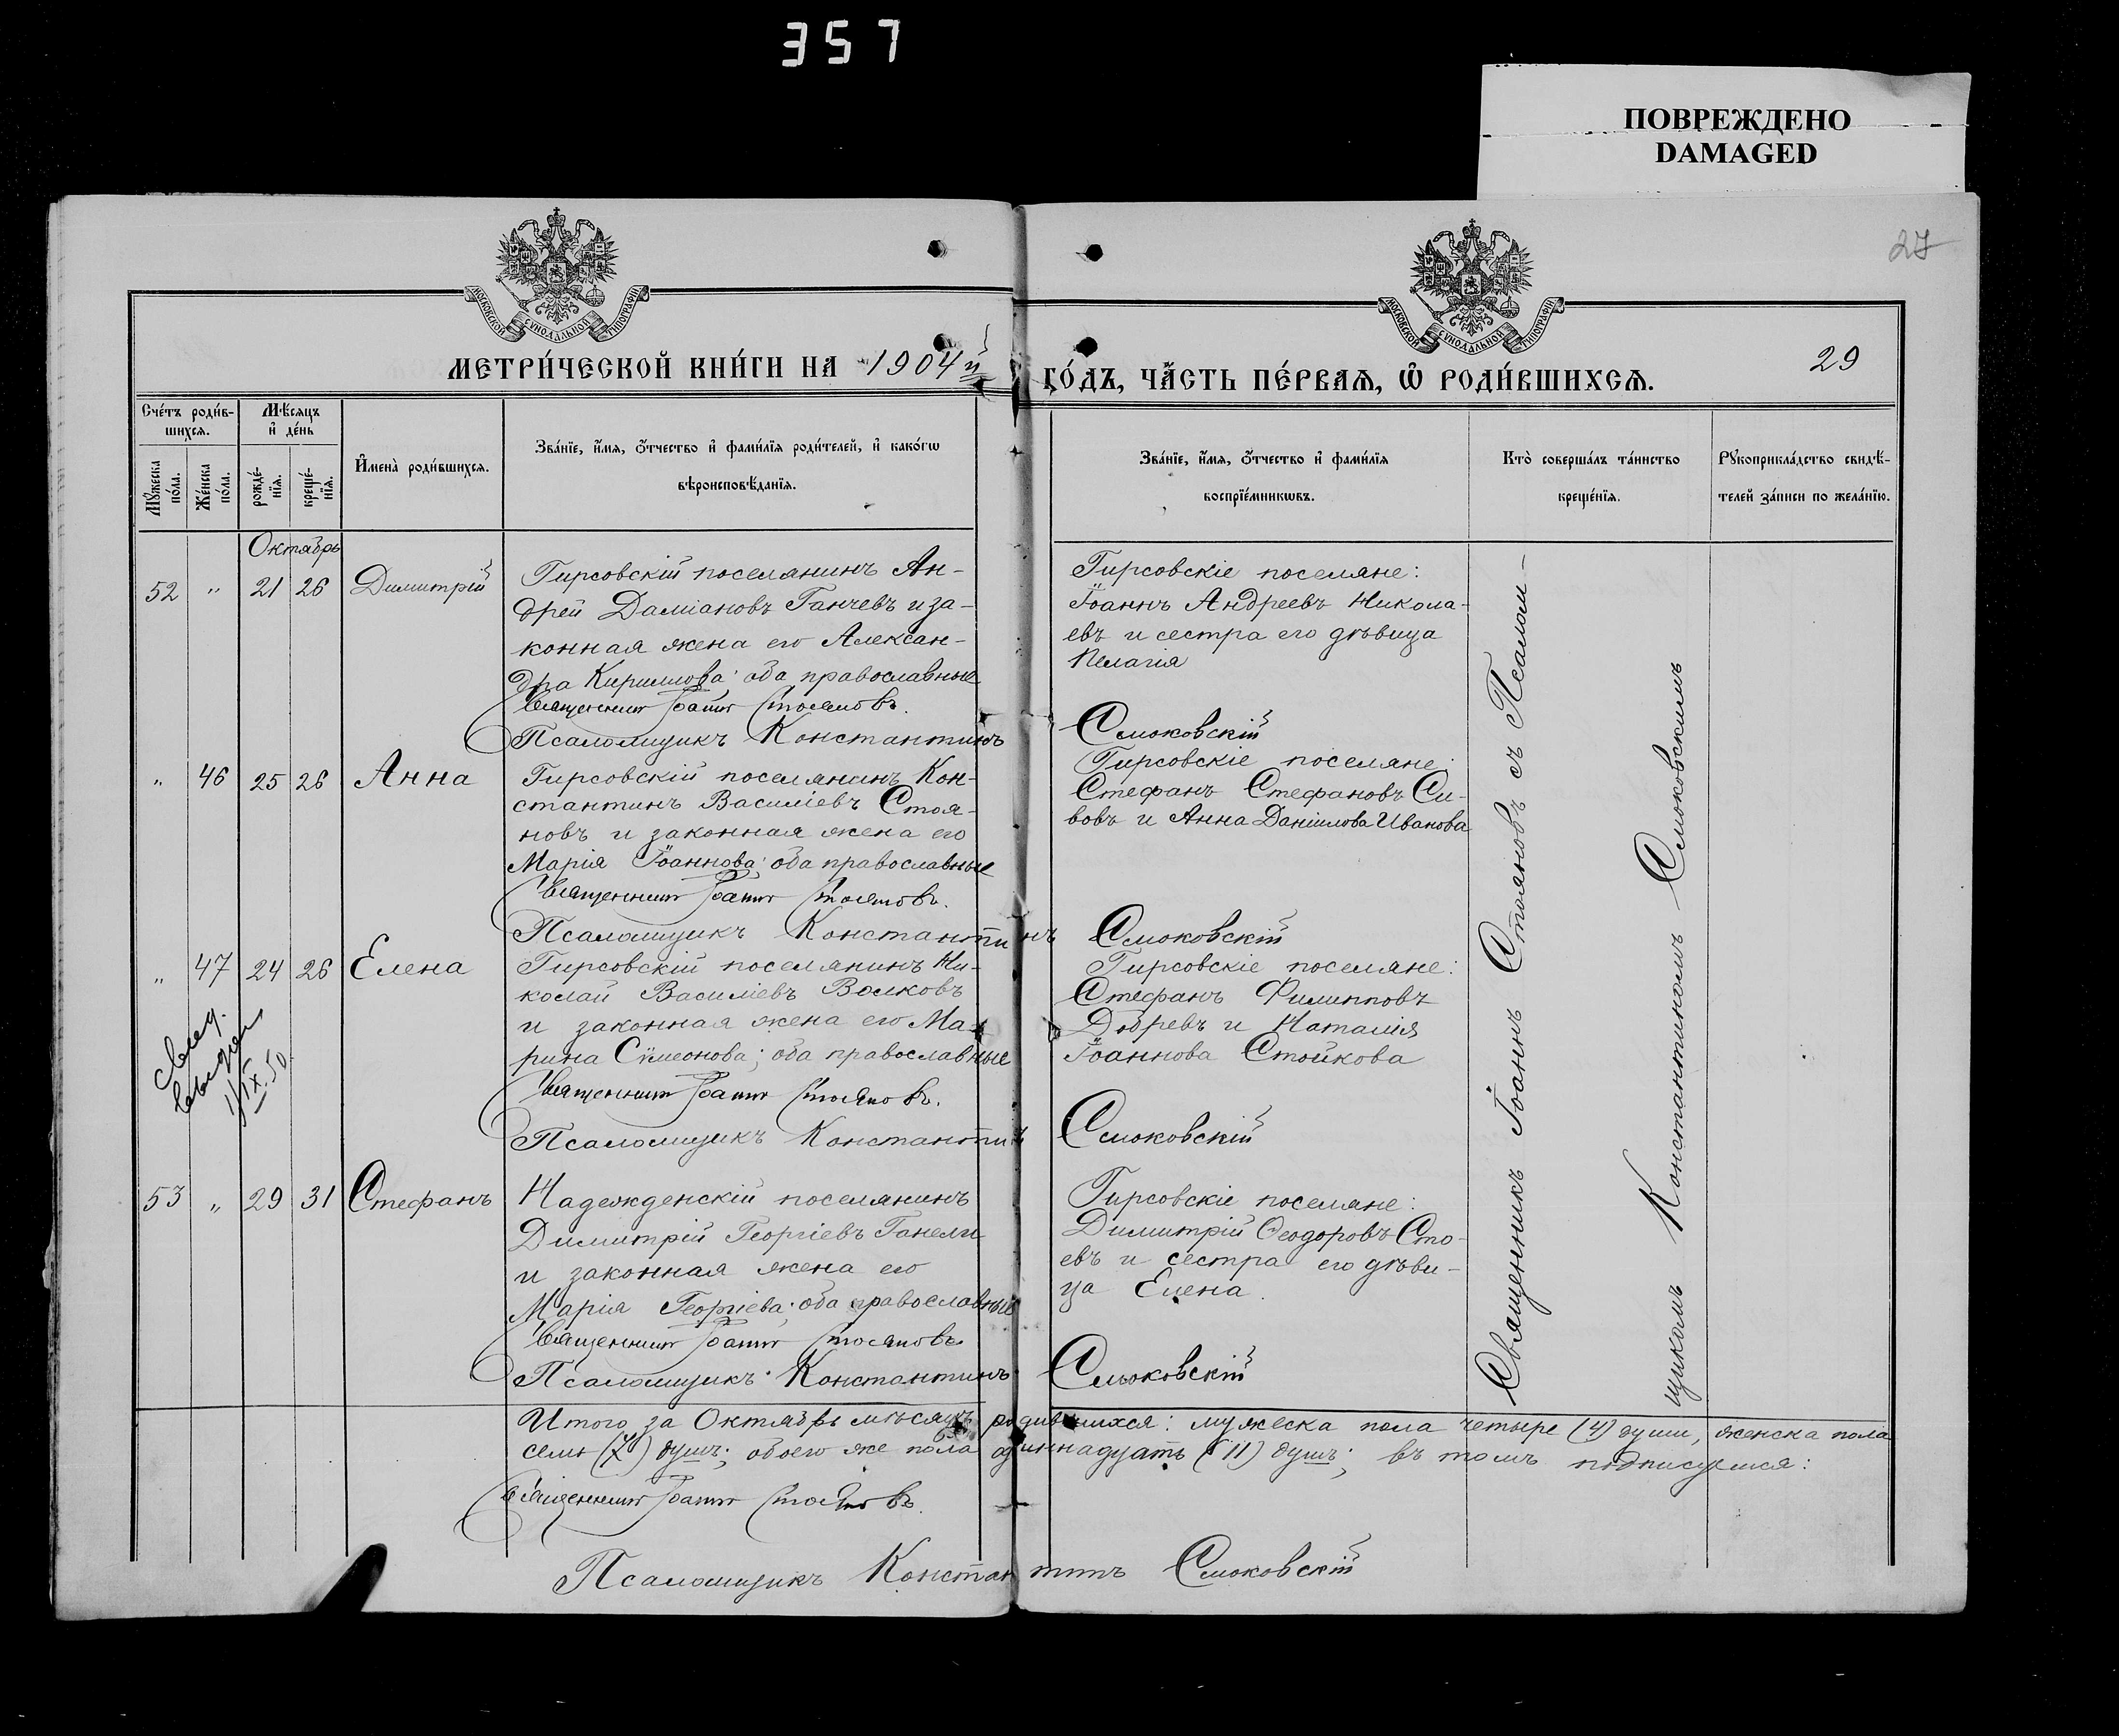 357
ПОВРЕЖДЕНО
DAMAGED
27
МОСКОВСКОЙ СѴНОДАЛЬНОЙ ТИПОГРАФІИ
МОСКОВСКОЙ СѴНОДАЛЬНОЙ ТИПОГРАФІИ
МЕТРИ́ЧЕСКОЙ КНИ́ГИ НА 1904й
ГО́ДЪ, ЧА́СТЬ ПЕ́РВАЯ, Ѡ РОДИ́ВШИХСЯ.
29
Сче́тъ роди́в-
шихся.
Мѣ́сяцъ
и де́нь
Мꙋ́жеска
по́ла.
Же́нска
по́ла.
рожде́-
нїя.
креще́-
нїя.
И҆мена̀ роди́вшихся.
Зва́нїе, и҆́мя, ѻ҆́тчество и҆ фами́лїя роди́телей, и҆ како́гѡ
вѣроисповѣ́данїя.
Зва́нїе, и҆́мя, ѻ҆́тчество и҆ фами́лїя
воспрїе́мникѡвъ.
Кто̀ соверша́лъ та́инство
креще́нїя.
Рꙋкоприкла́дство свидѣ́-
телей за́писи по жела́нїю.
Октябрь
52 " 21 26 Димитрій
Гирсовскій поселянинъ Ан-
дрей Даміановъ Ганчевъ и за-
конная жена его Алексан-
дра Кириллова; оба православные
Священникъ Іоаннъ Стояновъ.
Псаломщикъ Константинъ Смоковскій
Гирсовскіе поселяне:
Іоаннъ Андреевъ Никола-
евъ и сестра его дѣвица
Пелагія
" 46 25 26 Анна
Гирсовскій поселянинъ Кон-
стантинъ Василіевъ Стоя-
новъ и законная жена его
Марія Іоаннова; оба православные
Священникъ Іоаннъ Стояновъ.
Псаломщикъ Константинъ Смоковскій
Гирсовскіе поселяне:
Стефанъ Стефановъ Си-
вовъ и Анна Даніилова Иванова
" 47 24 26 Елена
Гирсовскій поселянинъ Ни-
колай Василіевъ Волковъ
и законная жена его Ма-
рина Сѵмеонова; оба православные
Священникъ Іоаннъ Стояновъ.
Псаломщикъ Константинъ Смоковскій
Гирсовскіе поселяне:
Стефанъ Филипповъ
Добревъ и Наталія
Іоаннова Стойкова
1/IX.50
53 " 29 31 Стефанъ
Надежденскій поселянинъ
Димитрій Георгіевъ Ганели
и законная жена его
Марія Георгіева; оба православные
Священникъ Іоаннъ Стояновъ
Псаломщикъ Константинъ Смоковскій
Гирсовскіе поселяне:
Димитрій Ѳеодоровъ Сто-
евъ и сестра его дѣви-
ца Елена.
Священникъ Іоаннъ Стояновъ съ Псалом-
щикомъ Константиномъ Смоковскимъ
Итого за Октябрь мѣсяцъ родившихся: мужеска пола четыре (4) души, женска пола
семь (7) душъ; обоего же пола одиннадцать (11) душъ; въ томъ подписуемся:
Священникъ Іоаннъ Стояновъ.
Псаломщикъ Константинъ Смоковскій